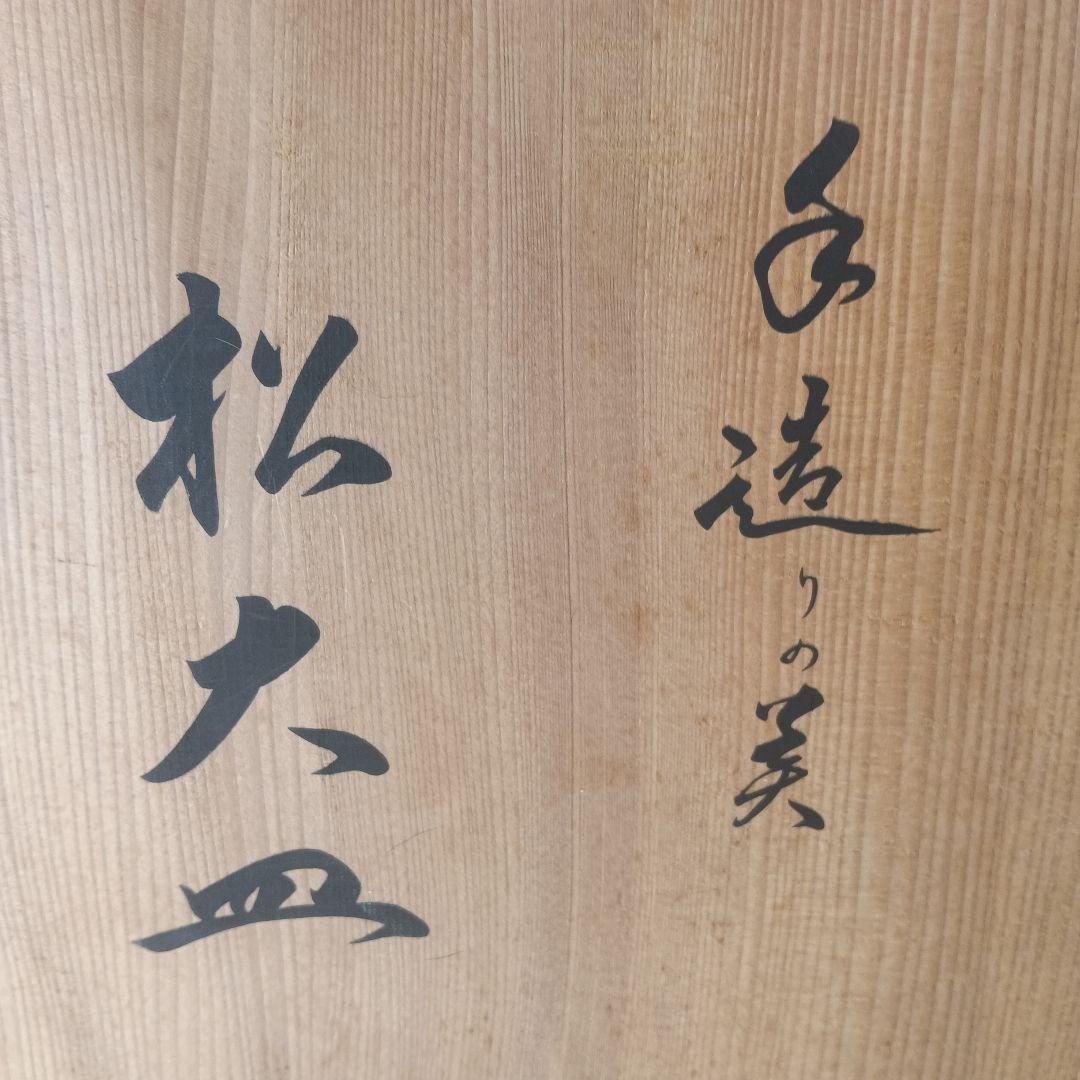 手造りの美
松大皿